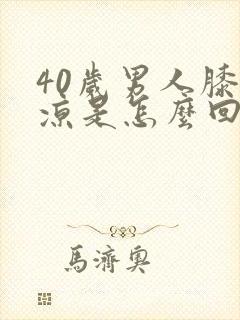 40歲男人膝
涼是怎麼回
馬濟奧